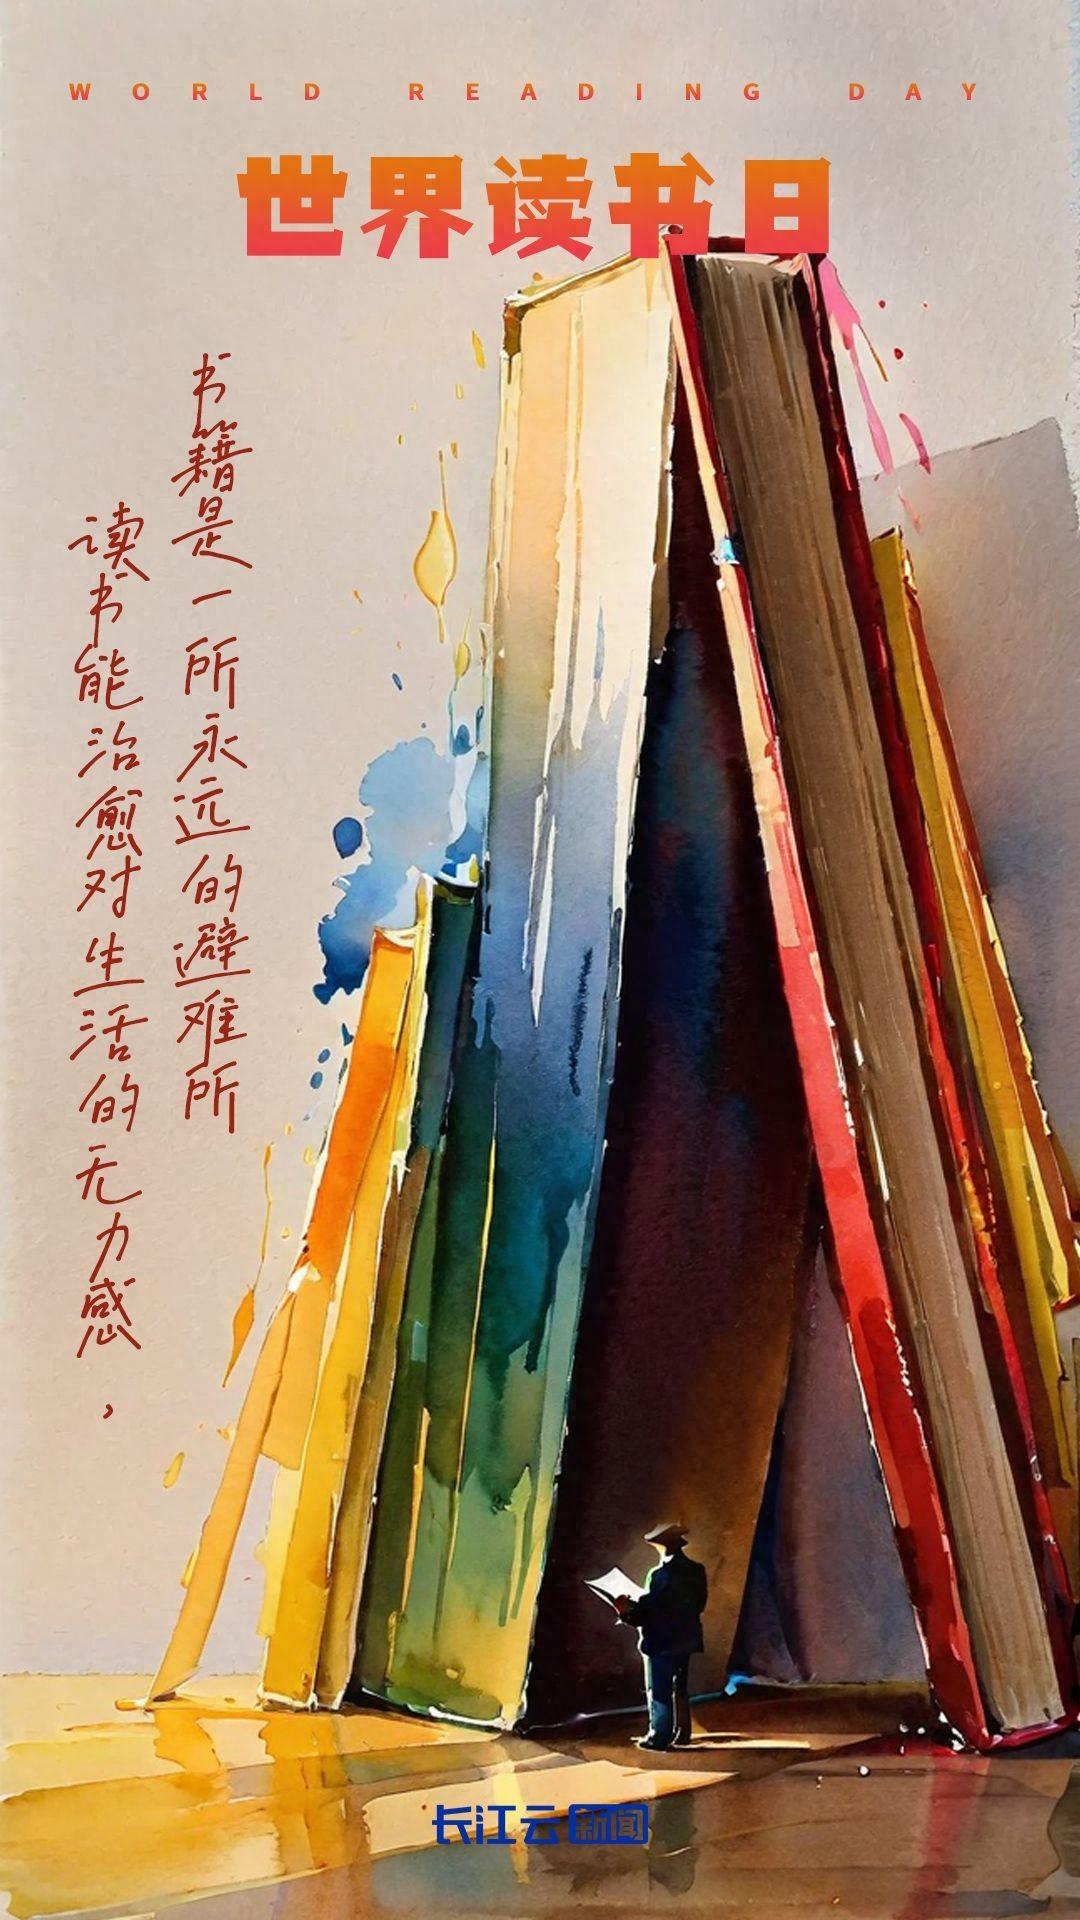 WORLD READING DAY
世界读书日
读书能治愈对生活的无力感，
书籍是一所永远的避难所
长江云新闻